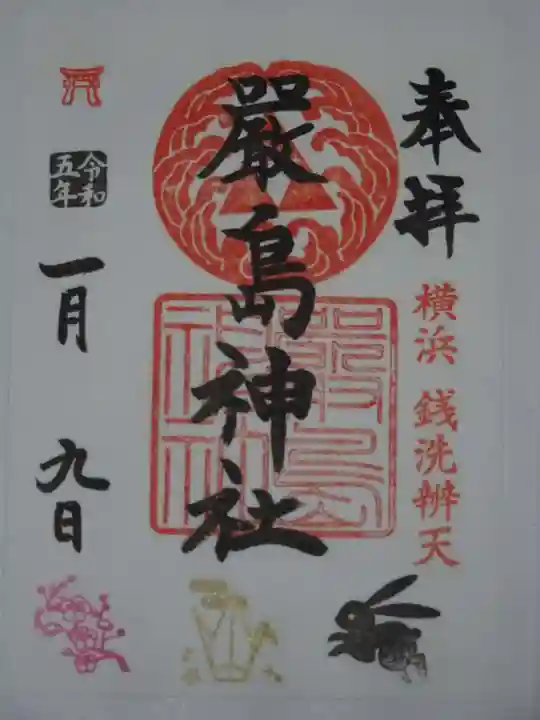 奉拝
横浜 銭洗辨天
嚴島神社
嚴島神社
令和五年
一月 九日